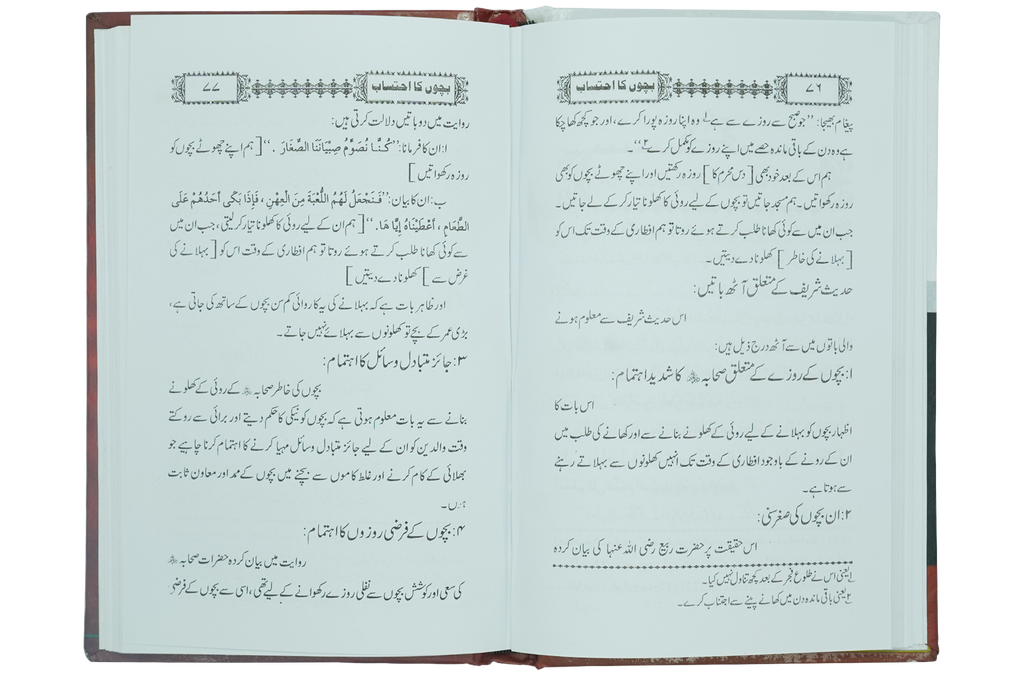 ۷۶
بچوں کا احتساب
پیغام بھیجا: ’’جو صبح سے روزے سے ہے۱؎ وہ اپنا روزہ پورا کرے، اور جو کچھ کھا چکا
ہے وہ دن کے باقی ماندہ حصے میں اپنے روزے کو مکمل کرے۲؎‘‘۔
ہم اس کے بعد خود بھی [دس محرم کا] روزہ رکھتیں اور اپنے چھوٹے بچوں کو بھی
روزہ رکھواتیں۔ ہم مسجد جاتیں تو بچوں کے لیے روئی کا کھلونا تیار کر کے لے جاتیں۔
جب ان میں سے کوئی کھانا طلب کرتے ہوئے روتا تو ہم افطاری کے وقت تک اس کو
[بہلانے کی خاطر] کھلونا دے دیتیں۔
حدیث شریف کے متعلق آٹھ باتیں:
اس حدیث شریف سے معلوم ہونے
والی باتوں میں سے آٹھ درج ذیل ہیں:
۱: بچوں کے روزے کے متعلق صحابہ رضی اللہ عنہم کا شدید اہتمام:
اس بات کا
اظہار بچوں کو بہلانے کے لیے روئی کے کھلونے بنانے سے اور کھانے کی طلب میں
ان کے رونے کے باوجود افطاری کے وقت تک انہیں کھلونوں سے بہلاتے رہنے
سے ہوتا ہے۔
۲: ان بچوں کی صغر سنی:
اس حقیقت پر حضرت ربیع رضی اللہ عنہا کی بیان کردہ
۱؎ یعنی اس نے طلوع فجر کے بعد کچھ تناول نہیں کیا۔
۲؎ یعنی باقی ماندہ دن میں کھانے پینے سے اجتناب کرے۔
بچوں کا احتساب
۷۷
روایت میں دو باتیں دلالت کرتی ہیں:
ا: ان کا فرمانا: ’’كُنَّا نُصَوِّمُ صِبْيَانَنَا الصِّغَارَ .‘‘ [ہم اپنے چھوٹے بچوں کو
روزہ رکھواتیں]
ب: ان کا بیان: ’’فَنَجْعَلُ لَهُمُ اللُّعْبَةَ مِنَ الْعِهْنِ ، فَإِذَا بَكَى أَحَدُهُمْ عَلَى
الطَّعَامِ ، أَعْطَيْنَاهُ إِيَّاهَا.‘‘ [ہم ان کے لیے روئی کا کھلونا تیار کر لیتی، جب ان میں
سے کوئی کھانا طلب کرتے ہوئے روتا تو ہم افطاری کے وقت اس کو [بہلانے کی
غرض سے] کھلونا دے دیتیں]
اور ظاہر بات ہے کہ بہلانے کی یہ کاروائی کم سن بچوں کے ساتھ کی جاتی ہے،
بڑی عمر کے بچے تو کھلونوں سے بہلائے نہیں جاتے۔
۳: جائز متبادل وسائل کا اہتمام:
بچوں کی خاطر صحابہ رضی اللہ عنہم کے روئی کے کھلونے
بنانے سے یہ بات معلوم ہوتی ہے کہ بچوں کو نیکی کا حکم دیتے اور برائی سے روکتے
وقت والدین کو ان کے لیے جائز متبادل وسائل مہیا کرنے کا اہتمام کرنا چاہیے جو
بھلائی کے کام کرنے اور غلط کاموں سے بچنے میں بچوں کے ممد اور معاون ثابت
ہوں۔
۴: بچوں کے فرضی روزوں کا اہتمام:
روایت میں بیان کردہ حضرات صحابہ رضی اللہ عنہم
کی سعی اور کوشش بچوں سے نفلی روزے رکھوانے کے لیے تھی، اسی سے بچوں کے فرضی